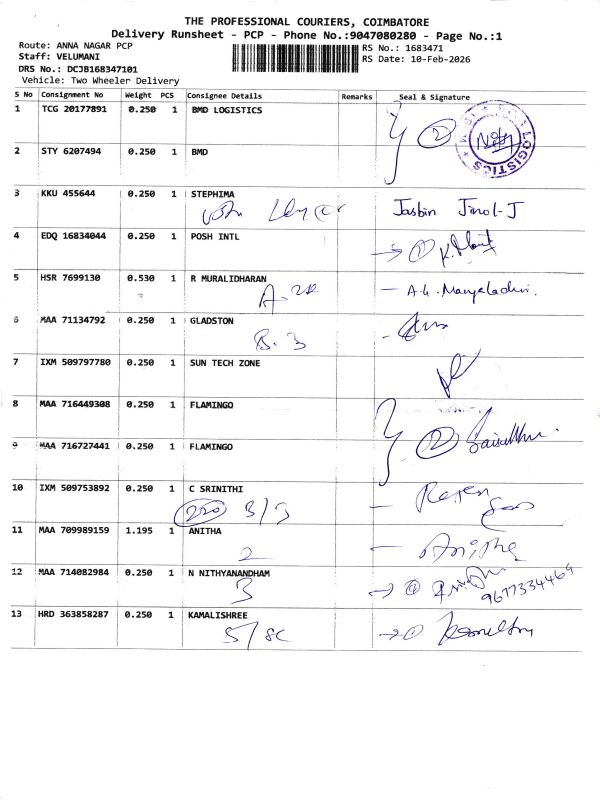 THE PROFESSIONAL COURIERS, COIMBATORE
Delivery Runsheet - PCP - Phone No.:9047080280 - Page No.:1
Route: ANNA NAGAR PCP
RS No.: 1683471
Staff: VELUMANI
RS Date: 10-Feb-2026
DRS No.: DCJB168347101
Vehicle: Two Wheeler Delivery
S No Consignment No Weight PCS Consignee Details Remarks Seal & Signature
1 TCG 20177891 0.250 1 BMD LOGISTICS
2 LOGISTICS
2 STY 6207494 0.250 1 BMD
3 KKU 455644 0.250 1 STEPHIMA
Jasbin Jinol-J
4 EDQ 16834044 0.250 1 POSH INTL
1
5 HSR 7699130 0.530 1 R MURALIDHARAN
6 MAA 71134792 0.250 1 GLADSTON
B. 3
7 IXM 509797780 0.250 1 SUN TECH ZONE
8 MAA 716449308 0.250 1 FLAMINGO
2
9 MAA 716727441 0.250 1 FLAMINGO
10 IXM 509753892 0.250 1 C SRINITHI
220 3/3
11 MAA 709989159 1.195 1 ANITHA
2 Anitha
12 MAA 714082984 0.250 1 N NITHYANANDHAM
3 9677334469
13 HRD 363858287 0.250 1 KAMALISHREE
5/8C